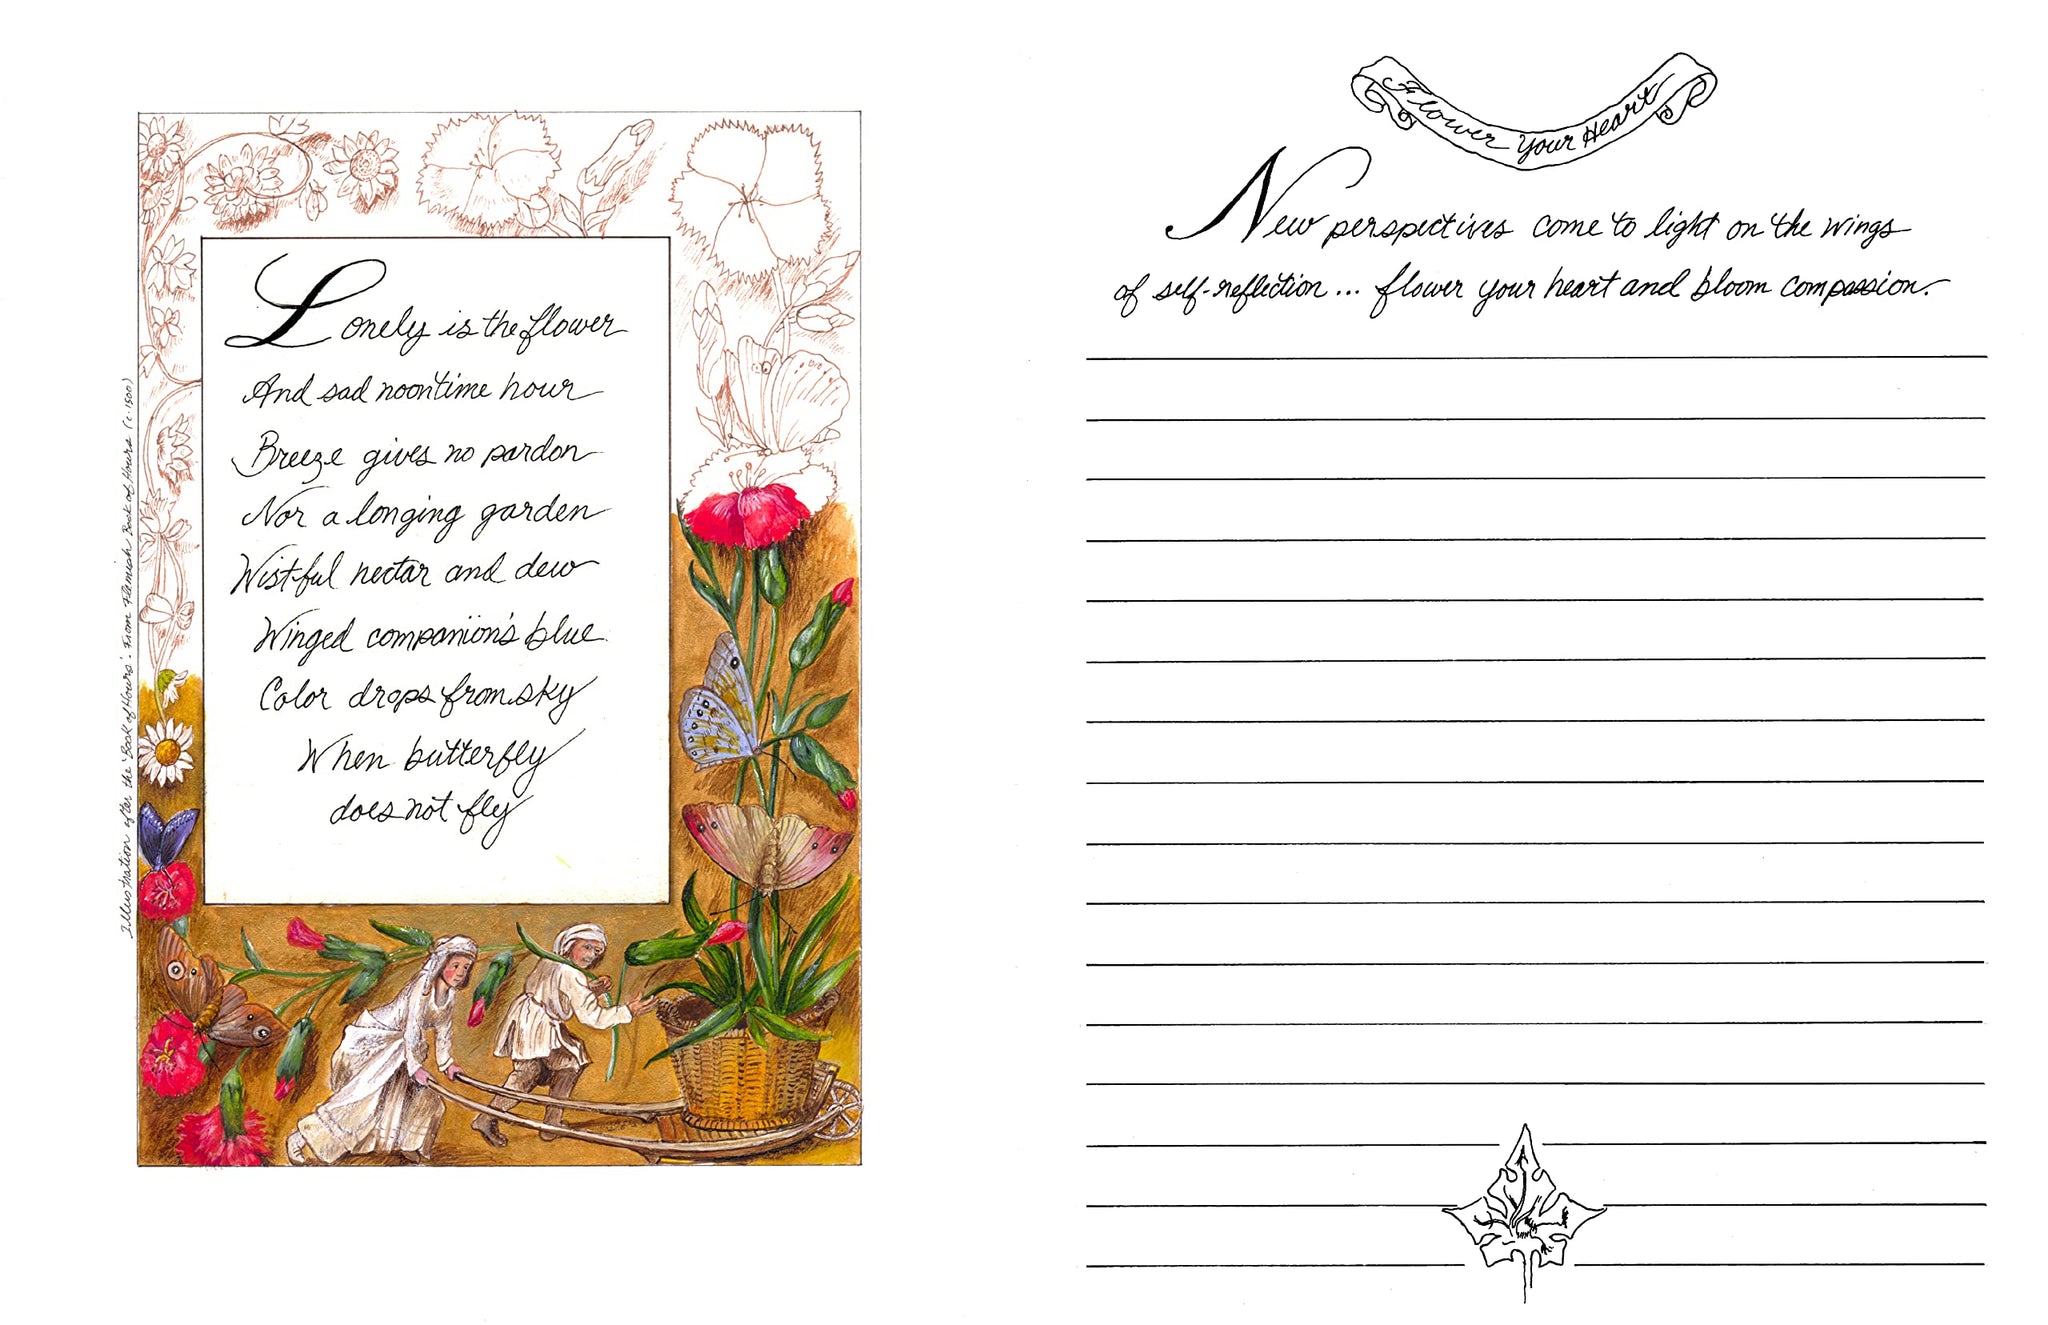 Lonely is the flower
And sad noontime hour
Breeze gives no pardon
Nor a longing garden
Wistful nectar and dew
Winged companion's blue
Color drops from sky
When butterfly
does not fly
Illustration after the 'Book of Hours'- From Flemish Book of Hours (c.1500)
Flower Your Heart
New perspectives come to light on the wings
of self-reflection... flower your heart and bloom compassion.